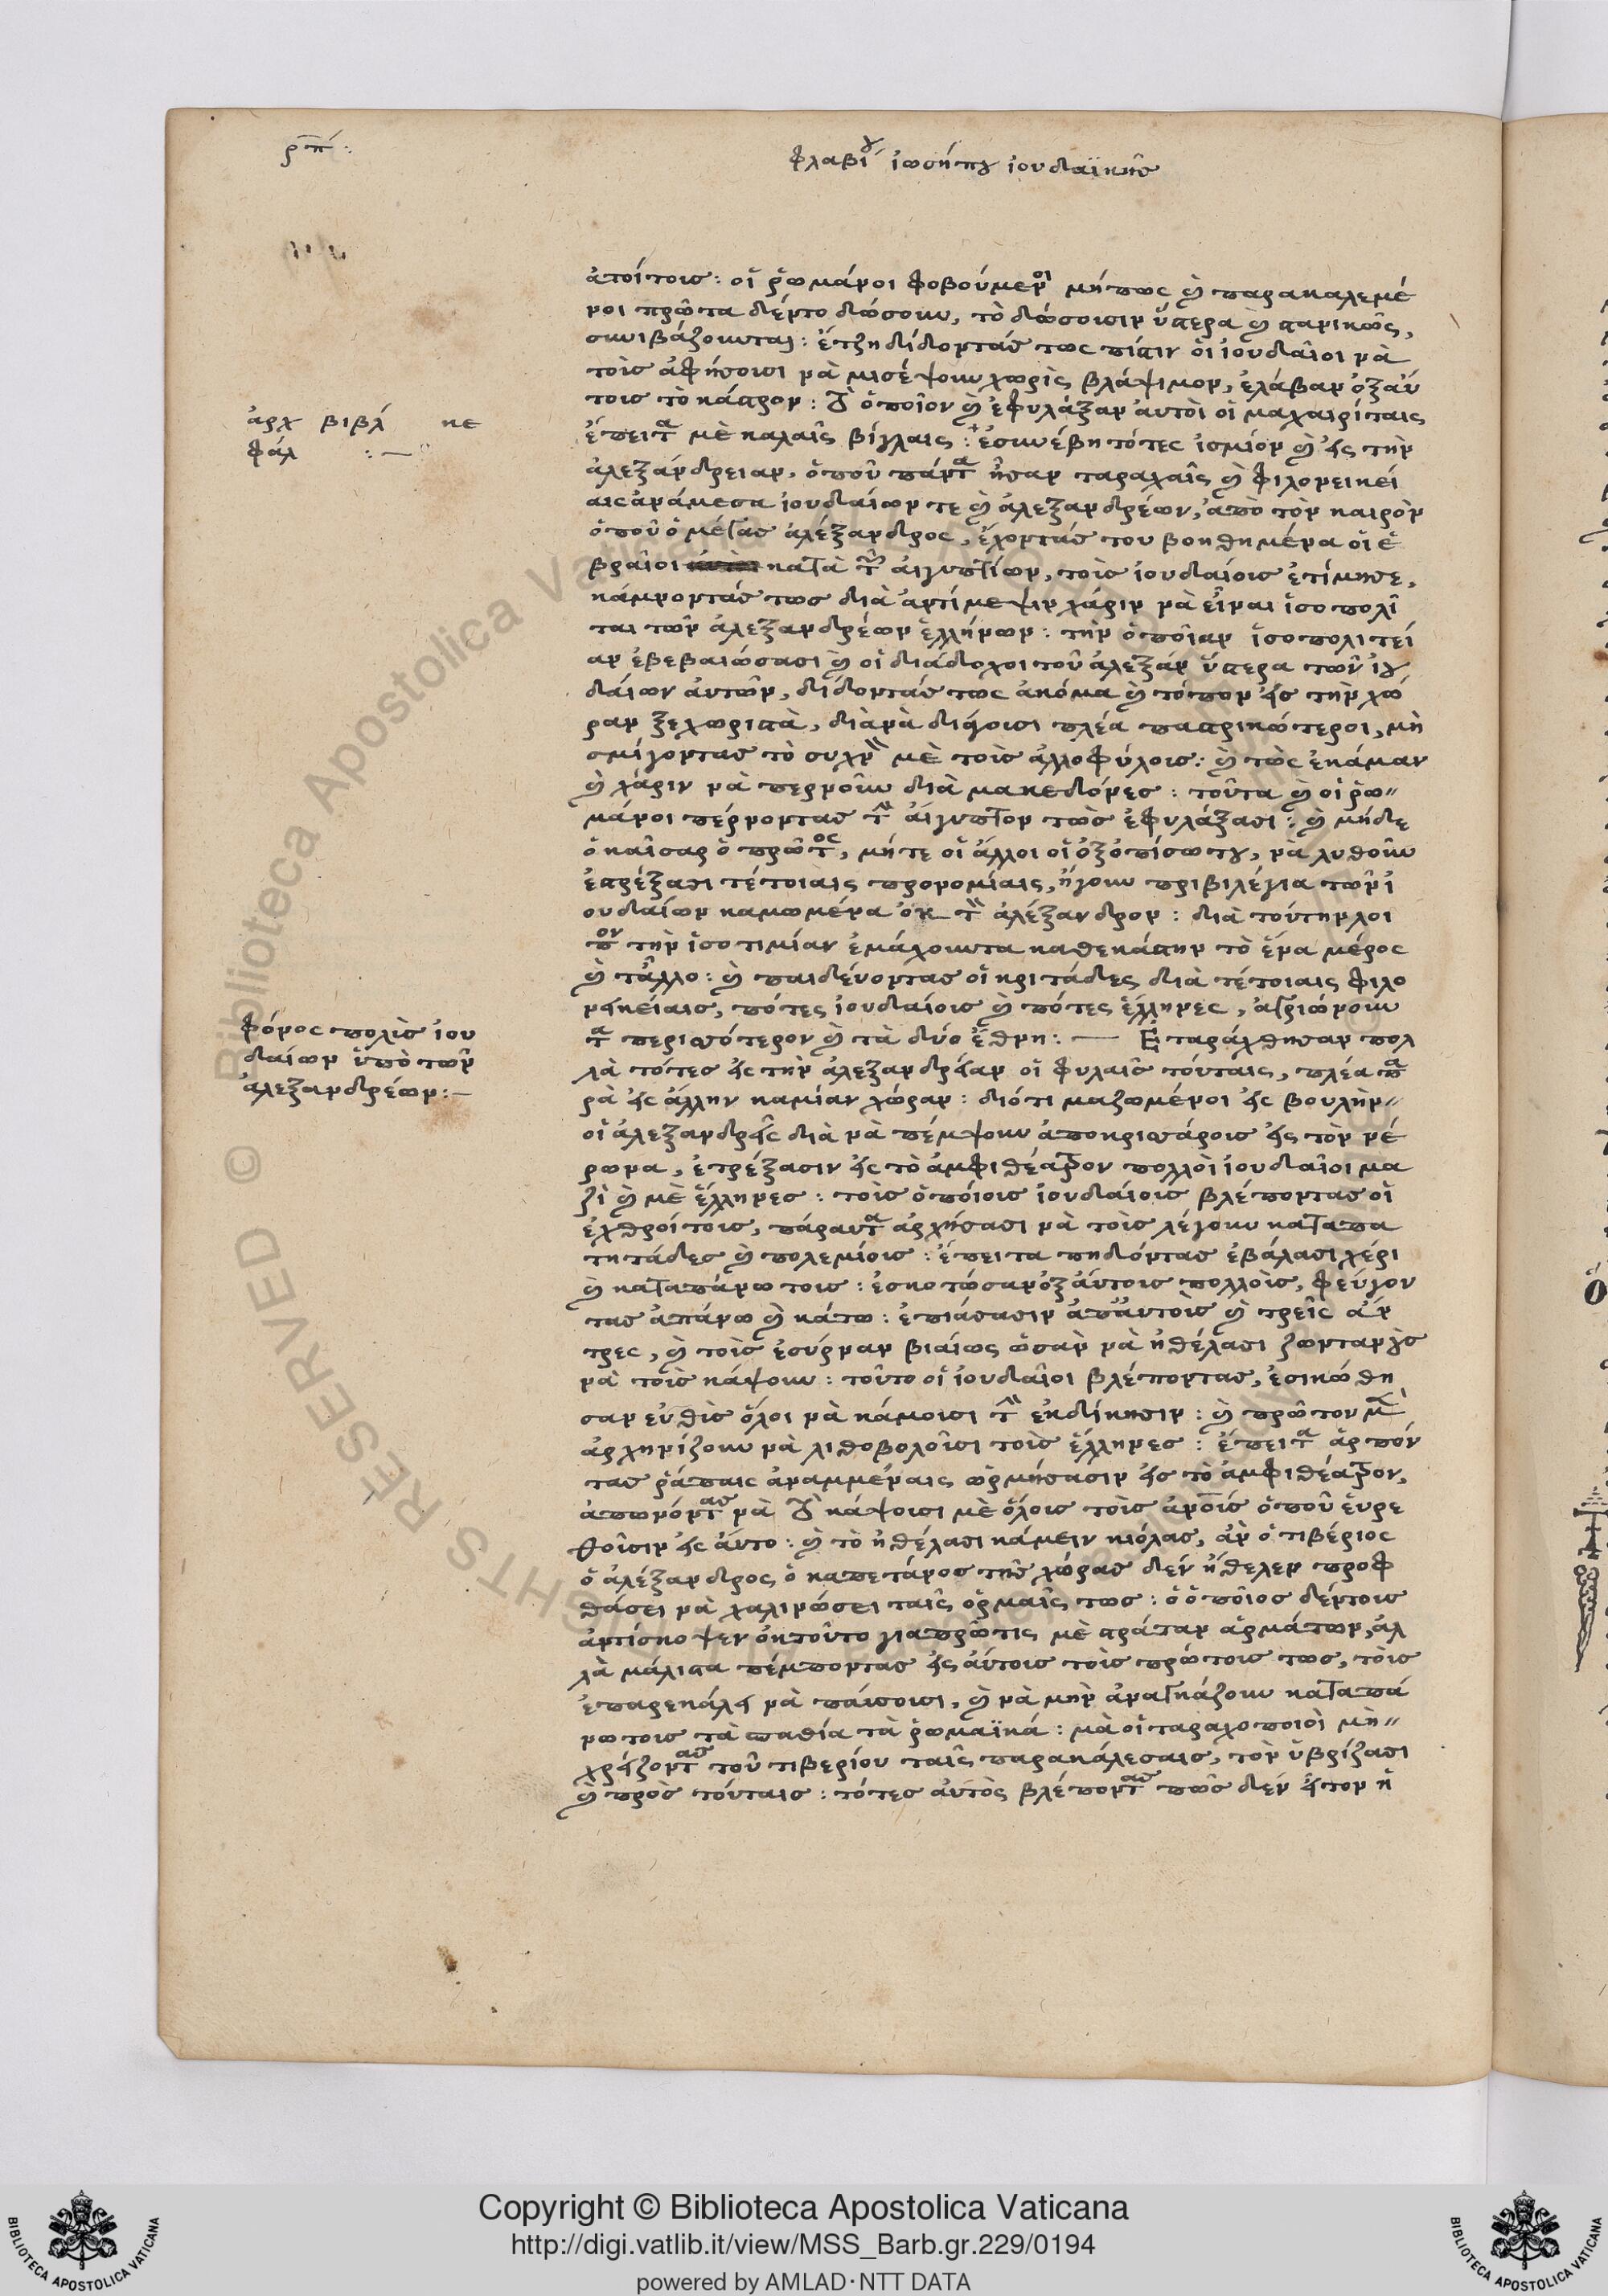 ρπ:
φλαβίου ἰωσήπου ἰουδαϊκῆς
ἀτοίτοις: οἱ ῥωμάνοι φοβούμενοι μήπως καὶ παρακαλεμέ
νοι πρῶτα δέντο δώσουν, τὸ δώσοισιν ὕστερα καὶ στανικῶς,
συνιβάζουνται: ἔτζη δίδοντάς τως πίστιν ὁι ἰουδαῖοι νὰ
τοὶς ἀφήσοισι νὰ μισέψουν χωρὶς βλάψιμον, ἐλάβαν ὀξαύ
τοις τὸ κάστρον: τὸ ὁποῖον καὶ ἐφυλάξαν ἀυτοὶ οἱ μαχαιρίταις
ἀρχ βιβλ κε
φάλ :—
ἔπειτα μὲ καλαῖς βίγλαις: ἐσυνέβη τότες ἰσμίον καὶ εἰς τὴν
ἀλεξάνδρειαν, ὁποῦ πάντα ἦσαν ταραχαῖς καὶ φιλονεικεί
αις ἀνάμεσα ἰουδαίων τε καὶ ἀλεξανδρέων, ἀπὸ τὸν καιρὸν
ὁποῦ ὁ μέγας ἀλέξανδρος, ἔχοντάς του βοηθημένα οἱ ἑ
βραῖοι κατὰ τῶν ἀιγυπτίων, τοὶς ἰουδαίοις ἐτίμησε,
κάμνοντάς τως διὰ ἀντίμεψιν χάριν νὰ εἶναι ἰσοπολῖ
ται τῶν ἀλεξανδρέων ἑλλήνων: τὴν ὁποῖαν ἰσοπολιτεί
αν ἐβεβαιώσασι καὶ οἱ διάδοχοι τοῦ ἀλεξάν ὕστερα τῶν ἰου
δάιων ἀυτῶν, δίδοντάς τως ἀκόμα καὶ τόπον εἰς τὴν χώ
ραν ξεχωριστὰ, διὰ νὰ διάγοισι πλέα παστρικώτεροι, μὴ
σμίγοντας τὸ συχνὸν μὲ τοὶς ἀλλοφύλοις: καὶ τὼς ἐκάμαν
καὶ χάριν νὰ περνοῦν διὰ μακεδόνες: τοῦτα καὶ οἱ ῥω
μάνοι πέρνοντας τὴν ἀίγυπτον τὼς ἐφυλάξασι: καὶ μήδε
ὁ καῖσαρ ὁ πρῶτος, μήτε οἱ ἄλλοι οἱ ὀξοπίσωτου, νὰ λυθοῦν
ἐστρέξασι τέτοιαις προνομίαις, ἤγουν πριβιλέγια τῶν ἰ
ουδαίων καμωμένα ὀκ τὸν ἀλέξανδρον: διὰ τούτην λοι
πὸν τὴν ἰσοτιμίαν ἐμάχουντα καθεκάστην τὸ ἕνα μέρος
καὶ τἄλλο: καὶ παιδέυοντας οἱ κριτάδες διὰ τέτοιαις φιλο
νεικείαις, πότες ἰουδαίοις καὶ πότες ἕλληνες, ἀγριώνουν
φόνος πολὶς ἰου
δαίων ὑπὸ τῶν
ἀλεξανδρέων:—
τα περισσότερον καὶ τὰ δύο ἔθνη: — Ἐταράχθησαν πολ
λὰ τότες εἰς τὴν ἀλεξανδρείαν οἱ φυλαῖς τούταις, πλέα πα
ρὰ εἰς ἄλλην καμίαν χώραν: διότι μαζωμένοι εἰς βουλὴν
οἱ ἀλεξανδρεῖς διὰ νὰ πέμψουν ἀποκρισάροις εἰς τὸν νέ
ρωνα, ἐτρέξασιν εἰς τὸ ἀμφιθέατρον πολλοὶ ἰουδαῖοι μα
ζὶ καὶ μὲ ἕλληνες: τοὶς ὁποίοις ἰουδαίοις βλέποντας οἱ
ἐχθροίτοις, πάραυτα ἀρχήσασι νὰ τοὶς λέγουν καταπα
τητάδες καὶ πολεμίοις: ἔπειτα πηδόντας ἐβάλασι χέρι
καὶ καταπάνω τοις: ἐσκοτώσαν ὀξάυτοις πολλοὶς, φεύγον
τας ἀπάνω καὶ κάτω: ἐπιάσασιν ἀπἀυτοὶς καὶ τρεῖς ἄν
τρες, καὶ τοὶς ἐσύρναν βιάιως ὡσὰν νὰ ἠθέλασι ζωντανοὺς
νὰ τοὶς κάψουν: τοῦτο οἱ ἰουδαῖοι βλέποντας, ἐσικώθη
σαν εὐθὶς ὅλοι νὰ κάμοισι τὴν ἐκδίκησιν: καὶ πρῶτον μὲν
ἀρχηνίζουν νὰ λιθοβολοῦσι τοὶς ἕλληνες: ἔπειτα ἁρπόν
τας ῥάπαις ἀναμμέναις ὡρμήσασιν εἰς τὸ ἀμφιθέατρον,
ἀπωνόντας νὰ τὸ κάψοισι μὲ ὅλοις τοὶς ἀνοὶς ὁποῦ ἑυρε
θοῦσιν εἰς ἀυτο: καὶ τὸ ἠθέλασι κάμειν κιόλας, ἂν ὁ τιβέριος
ὁ ἀλέξανδρος ὁ καπετάνος τῆς χώρας δὲν ἤθελεν προφ
θάσει νὰ χαλινώσει ταῖς ὁρμαῖς τως: ὁ ὁποῖος δέντοις
ἀντίσκοψεν ὀκτοῦτο γιαπρῶτις μὲ στράταν ἁρμάτων, ἀλ
λὰ μάλιστα πέμποντας εἰς ἀύτοις τοὶς πρώτοις τως, τοὶς
ἐπαρεκάλει νὰ πάισοισι, καὶ νὰ μὴν ἀναγκάζουν καταπά
νωτοις τὰ σπαθία τὰ ῥωμαϊκά: μὰ οἱ ταραχοποιοὶ μὴ
χρήζοντας τοῦ τιβερίου ταῖς παρακάλεσαις, τὸν ὑβρίζασι
καὶ πρὸς τούταις: τότες ἀυτὸς βλέποντας πῶς δὲν ἦτον ἢ
Copyright © Biblioteca Apostolica Vaticana
http://digi.vatlib.it/view/MSS_Barb.gr.229/0194
powered by AMLAD·NTT DATA